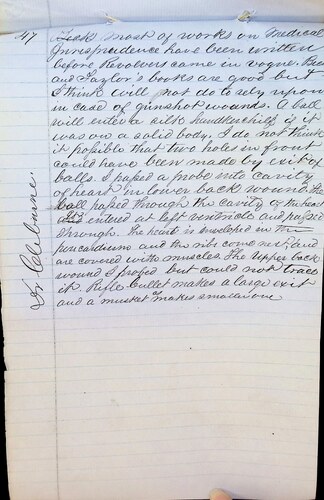 47
most of works on medical
Jurisprudence have been written
before Revolvers came in vogue.
and Taylor's books are good but
I think will not do to rely upon
in case of gunshot wounds. A ball
will enter a silk handkerchief is it
was on a solid body. I do not think
it possible that two holes in front
could have been made by exit of
balls. I passed a probe into cavity
of heart in lower back wound. The
ball passed through the cavity of the heart
entered at left ventricle and passed
through. The heart is enveloped in the
and the ribs come next and
are covered with muscles. The upper back
wound I probed but could not trace
it. Rifle bullet makes a large exit
and a musket makes small one
Dr